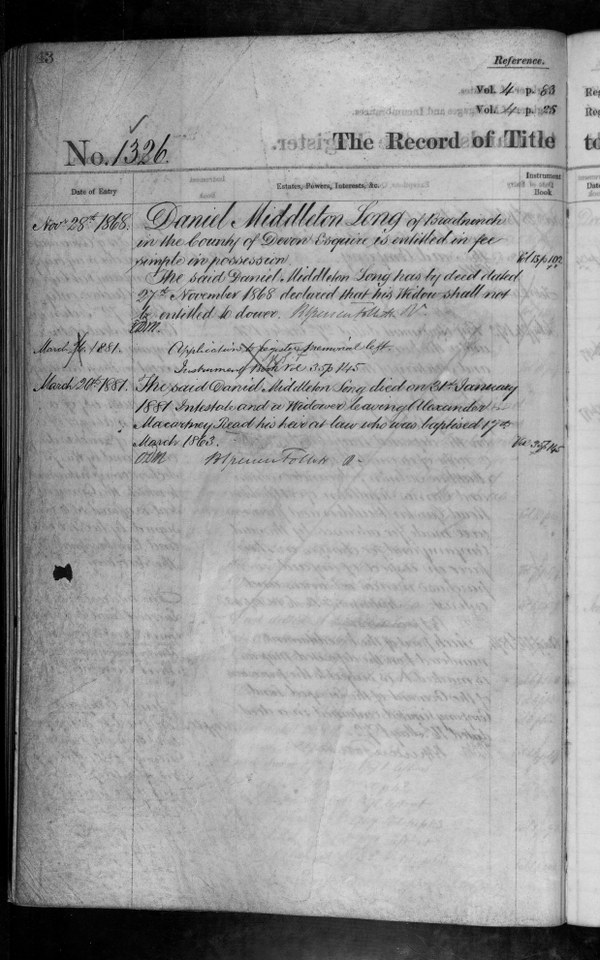 43
Reference.
Vol. 4 p. 83
Vol. 4 p. 25
No. 1326.
The Record of Title
Date of Entry
Estates, Powers, Interests, &c.
Instrument Book
Novr 28th 1868.
Daniel Middleton Long of Bradninch
in the County of Devon Esquire is entitled in fee
simple in possession
Vol 15 p 192
The said Daniel Middleton Long has by deed dated
27th November 1868 declared that his Widow shall not
be entitled to dower. Follett
March 1881.
Application to register memorial left.
Instrument Book Vol 35 p 145
March 20th 1881.
The said Daniel Middleton Long died on 31st January
1881 Intestate and a Widower leaving Alexander
Macartney Read his heir at law who was baptised 17th
March 1863.
Vol 35 p 145
Follett